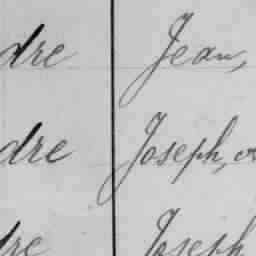 dre Jean,
dre Joseph,
dre Joseph